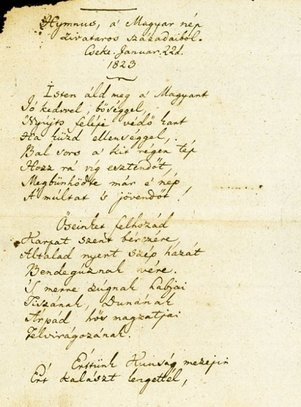 Hymnus, a' Magyar nép
zivataros századaiból.
Cseke. Januar. 22d.
1823
Isten áld meg a Magyart
Jó kedvvel, bőséggel,
Nyújts feléje védő kart
Ha küzd ellenséggel,
Bal sors a' kit régen tép
Hozz rá víg esztendőt,
Megbűnhődte már e' nép
A' múltat 's jövendőt!
Őseinket felhozád
Kárpát szent bérczére,
Általad nyert szép hazát
Bendegúznak vére.
'S merre zúgnak habjai
Tiszának, Dunának
Árpád hős magzatjai
Felvirágozának.
Értünk Kunság mezején
Ért kalászt lengettél,